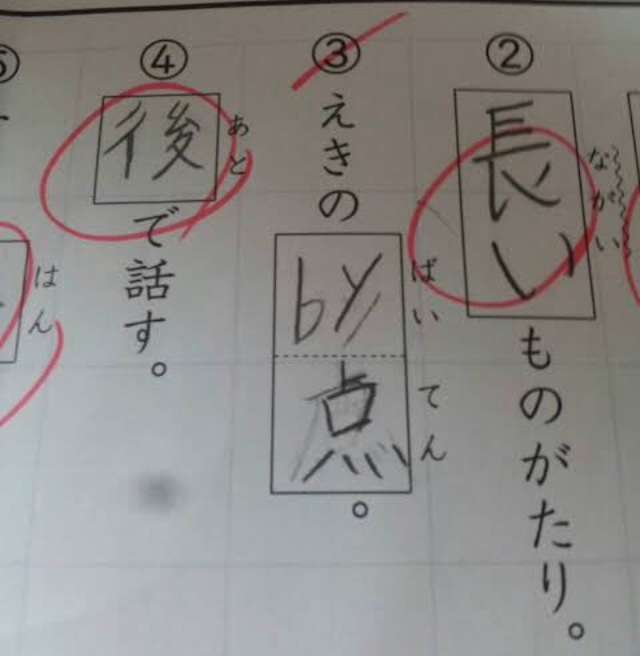 ②
長いものがたり。
ながい
③
えきのby点。
ばいてん
④
後で話す。
あと
⑤
はん